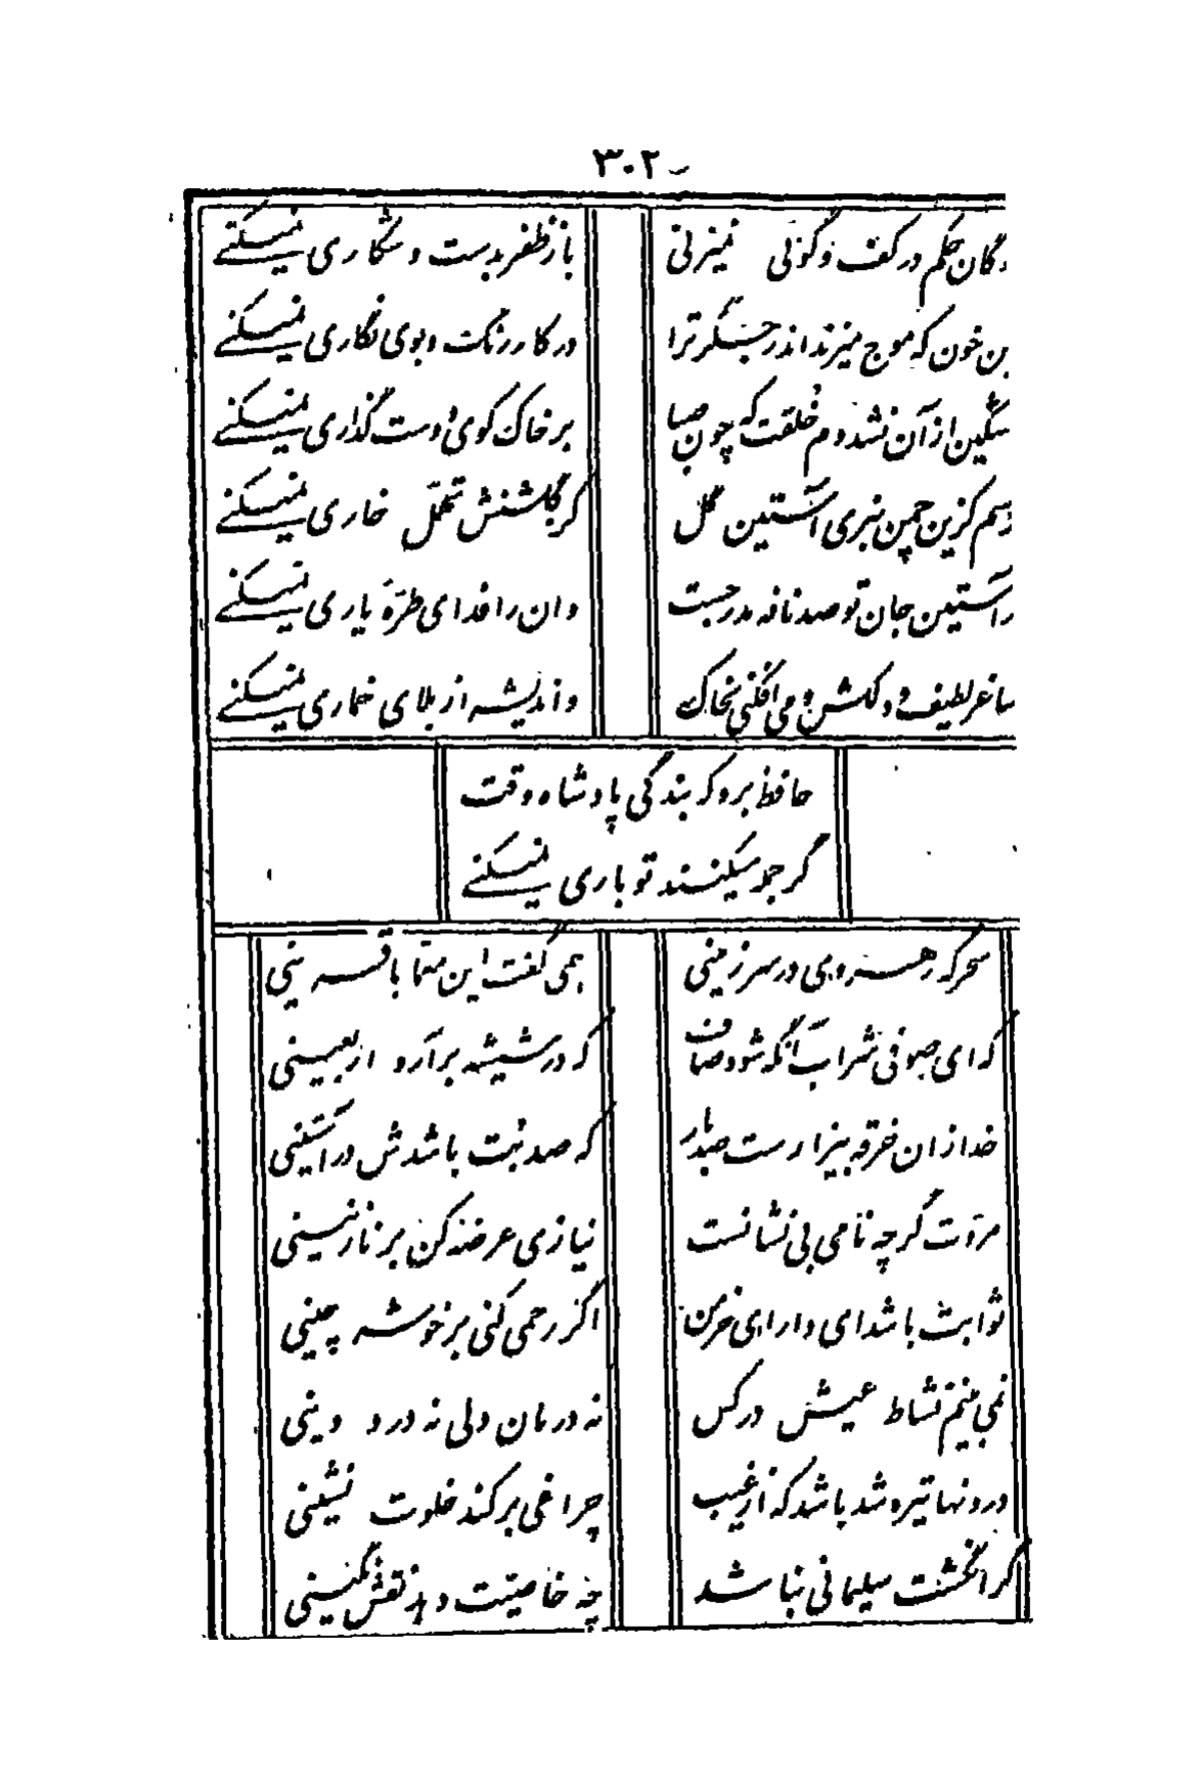 ۳۰۲
چوگان حکم در کف و گوئی نمیزنی
باز ظفر بدست و شکاری نمیکنی
این خون که موج میزند اندر جگر ترا
در کار رنگ و بوی نگاری نمیکنی
مشکین از آن نشد دم خلقت که چون صبا
بر خاک کوی دوست گذاری نمیکنی
ترسم کزین چمن نبری آستین گل
کز گلشنش تحمّل خاری نمیکنی
در آستین جان تو صد نافه مدرجست
وان را فدای طرّهٔ یاری نمیکنی
ساغر لطیف و دلکش و می افکنی بخاک
واندیشه از بلای خماری نمیکنی
حافظ برو که بندگی پادشاه وقت
گر جمله میکنند تو باری نمیکنی
سحرگه رهروی در سرزمینی
همی گفت این معمّا با قرینی
که ای صوفی شراب آنگه شود صاف
که در شیشه برآرد اربعینی
خدا زان خرقه بیزارست صد بار
که صد بت باشدش در آستینی
مروّت گرچه نامی بی نشانست
نیازی عرضه کن بر نازنینی
ثوابت باشد ای دارای خرمن
اگر رحمی کنی بر خوشه چینی
نمی بینم نشاط عیش در کس
نه درمان دلی نه درد دینی
درونها تیره شد باشد که از غیب
چراغی بر کند خلوت نشینی
گر انگشت سلیمانی نباشد
چه خاصیّت دهد نقش نگینی